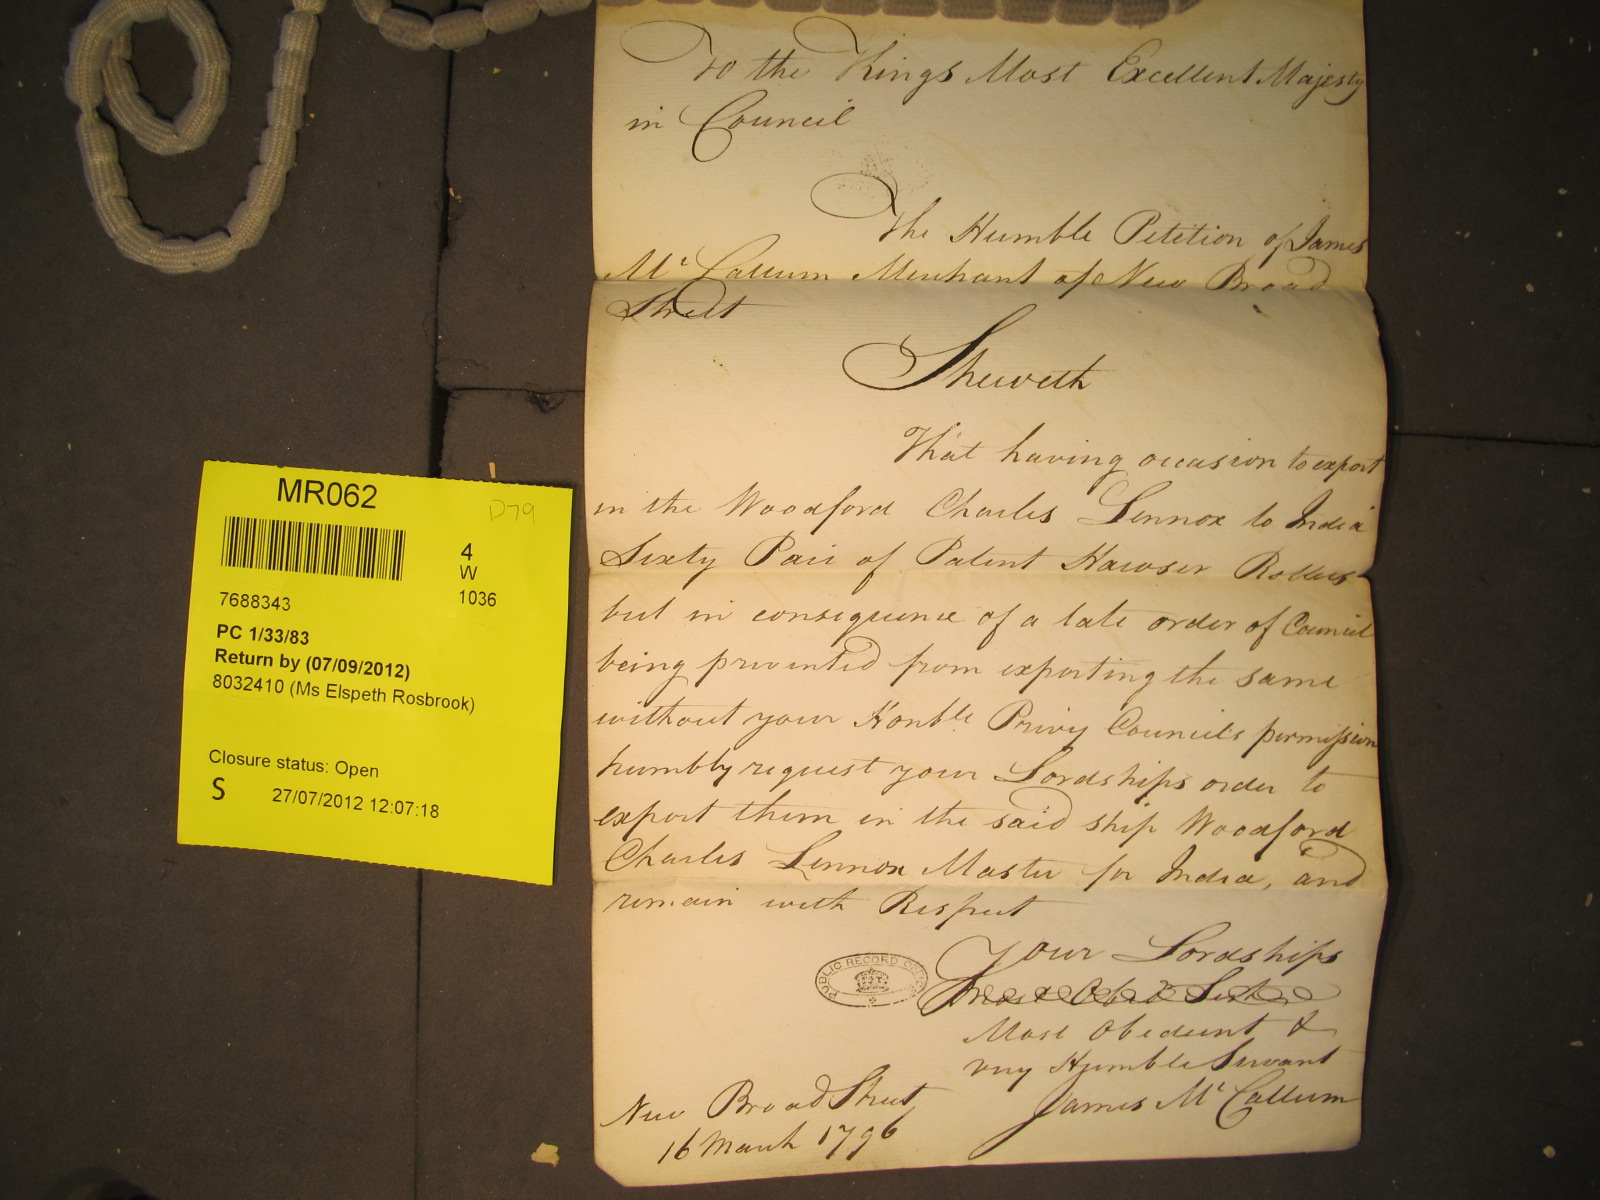 To the Kings Most Excellent Majesty
in Council
The Humble Petition of James
Mc Callum Merchant of New Broad
Street
Sheweth
That having occasion to export
in the Woodford Charles Lennox to India
Sixty Pair of Patent Hawser Rollers
but in consequence of a late order of Council
being prevented from exporting the same
without your Honble. Privy Councils permission
humbly request your Lordships order to
export them in the said ship Woodford
Charles Lennox Master for India, and
remain with Respect
Your Lordships
Most Obedient &
very Humble Servant
James Mc Callum
New Broad Street
16 March 1796
PUBLIC RECORD
MR062
D79
4
W
1036
7688343
PC 1/33/83
Return by (07/09/2012)
8032410 (Ms Elspeth Rosbrook)
Closure status: Open
S 27/07/2012 12:07:18